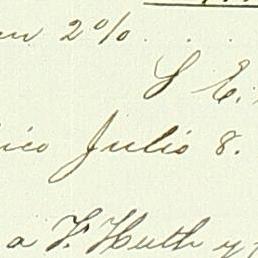 2%. . .
S E.
ico Julio 8.
a F. Huth y